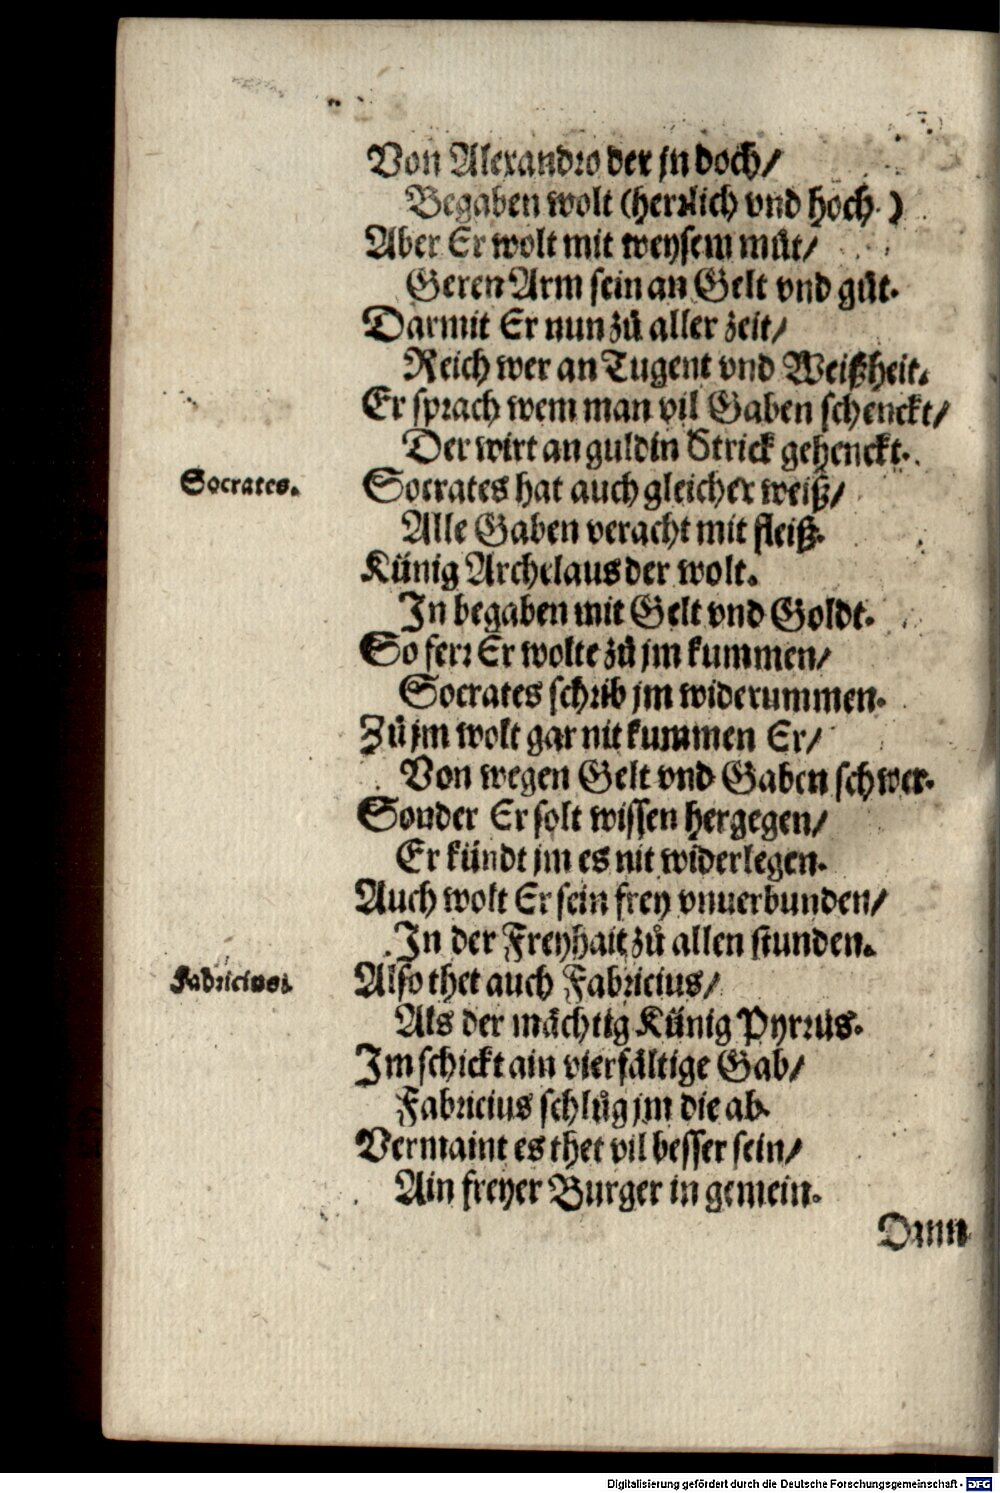 Von Alexandro der jn doch/
Begaben wolt (herrlich vnd hoch.)
Aber Er wolt mit weysem můt/
Geren Arm sein an Gelt vnd gůt.
Darmit Er nun zů aller zeit/
Reich wer an Tugent vnd Weißheit.
Er sprach wem man vil Gaben schenckt/
Der wirt an guldin Strick gehenckt.
Socrates.
Socrates hat auch gleicher weiß/
Alle Gaben veracht mit fleiß.
Künig Archelaus der wolt.
In begaben mit Gelt vnd Goldt.
So ferr Er wolte zů jm kummen/
Socrates schrib jm widerummen.
Zů jm wolt gar nit kummen Er/
Von wegen Gelt vnd Gaben schwer.
Sonder Er solt wissen hergegen/
Er kündt jm es nit widerlegen.
Auch wolt Er sein frey vnuerbunden/
In der Freyhait zů allen stunden.
Fabricius.
Also thet auch Fabricius/
Als der mächtig Künig Pyrrus.
Im schickt ain vierfältige Gab/
Fabricius schlůg jm die ab.
Vermaint es thet vil besser sein/
Ain freyer Burger in gemein.
Dann
Digitalisierung gefördert durch die Deutsche Forschungsgemeinschaft - DFG